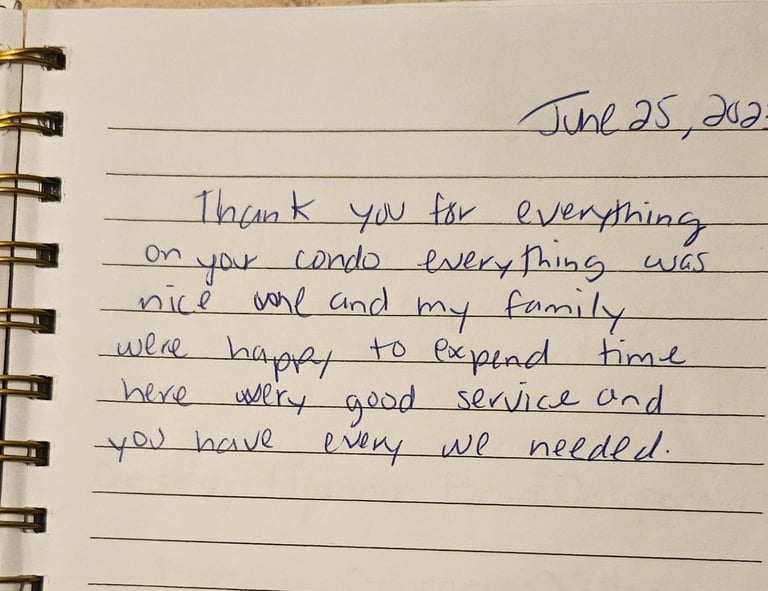 June 25, 202
Thank you for everything
on your condo everything was
nice and my family
were happy to expend time
here wery good service and
you have every we needed.